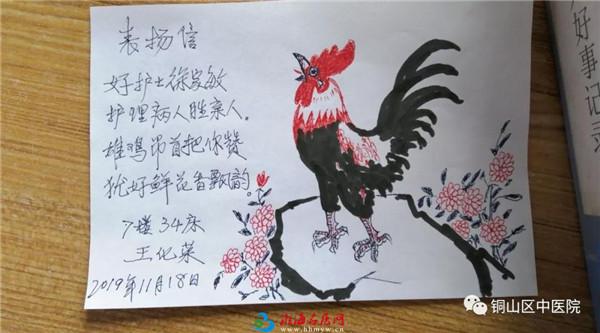 表扬信
好护士徐家敏
护理病人胜亲人。
雄鸡昂首把你赞
犹好鲜花香飘韵。
7楼 34床
王化荣
2019年11月18日
好事记录
铜山区中医院
淮海名医网
www.hhmyw.cn